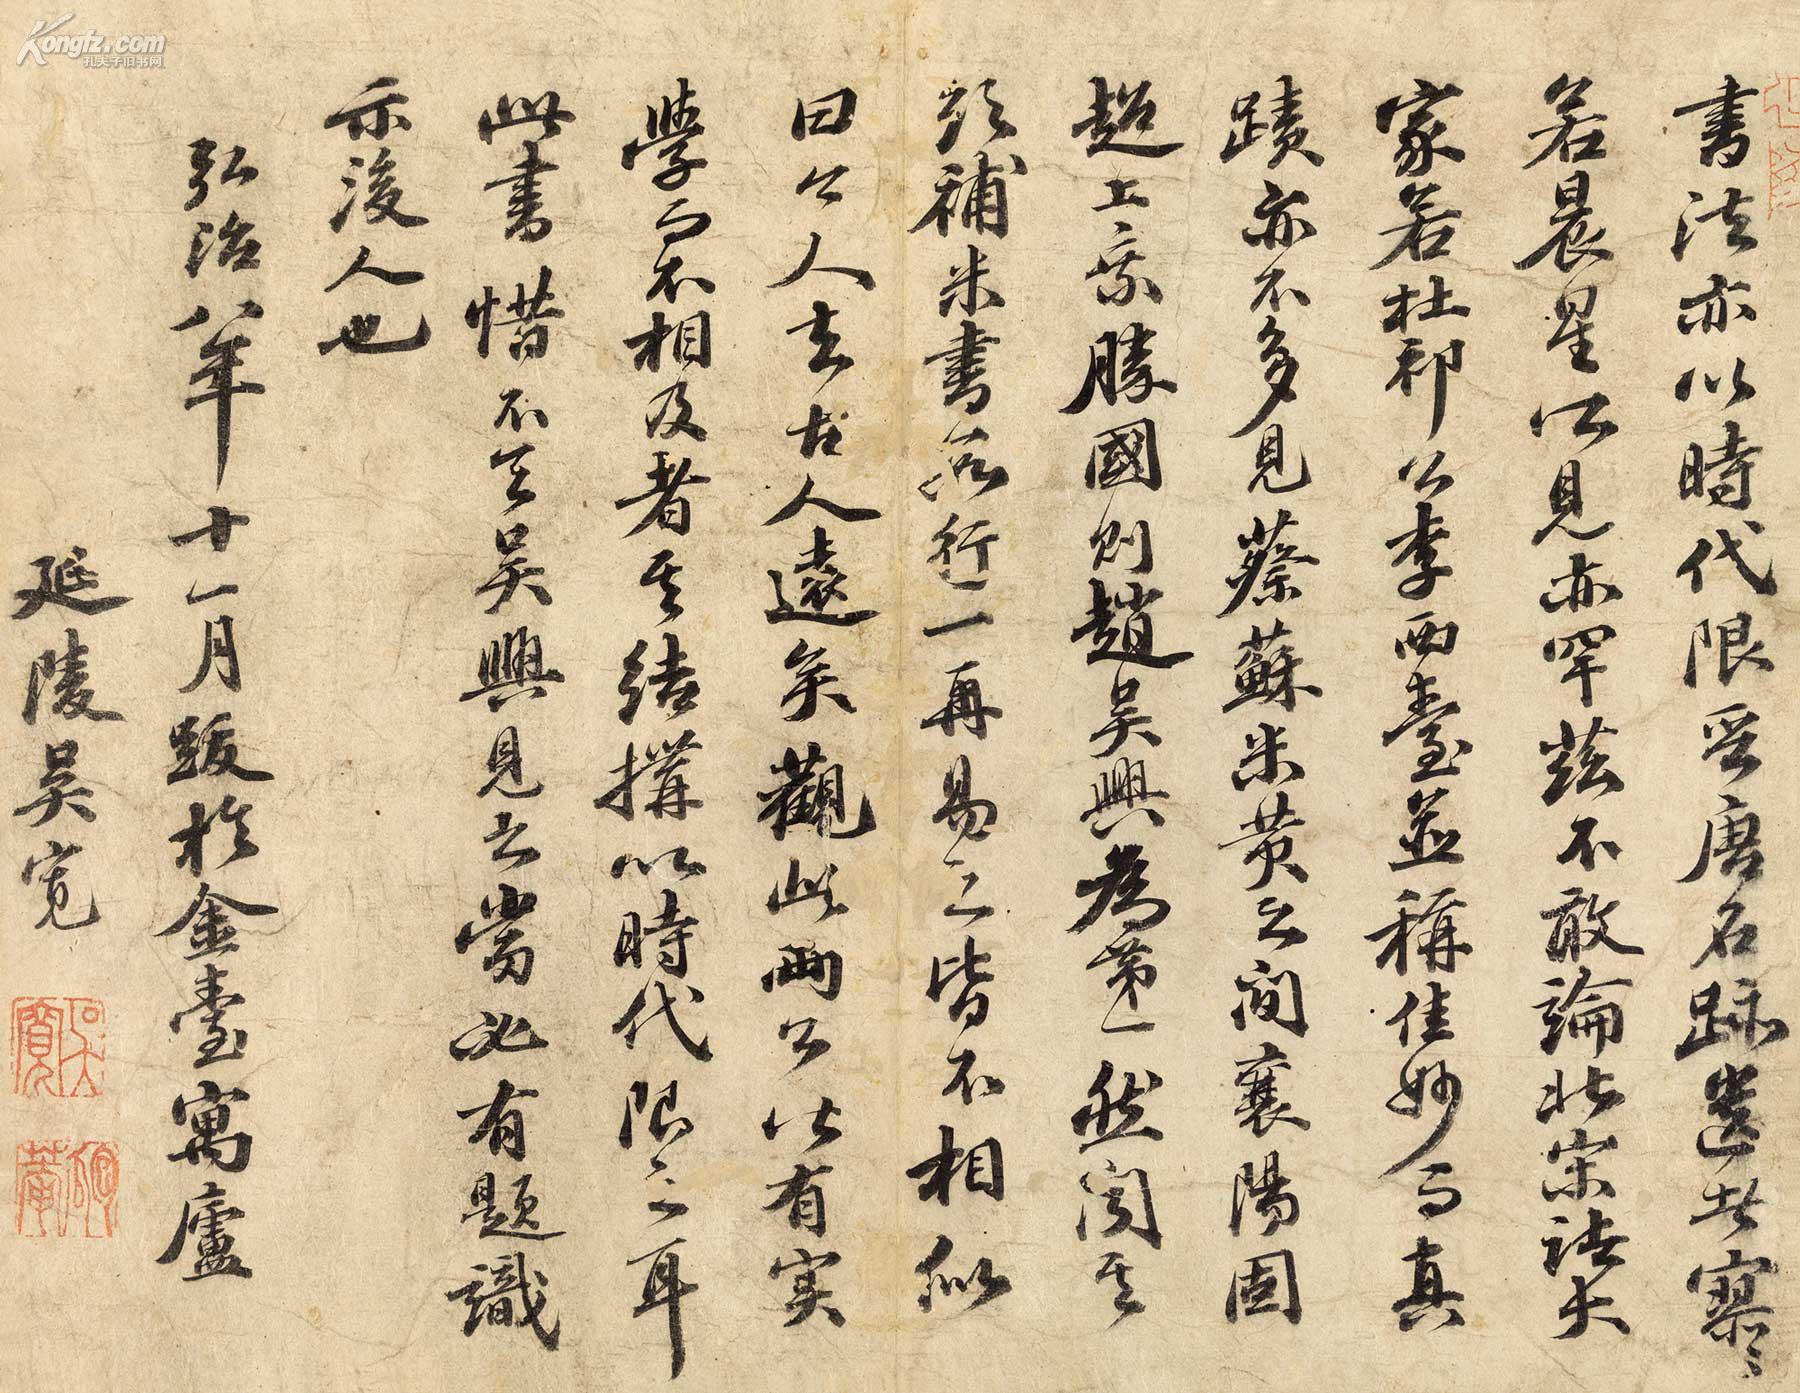 書法亦以時代限晉唐名跡遺者寥〻
若晨星所見亦罕茲不敢論北宋諸大
家若杜祁公李西臺並稱佳妙而真
蹟亦不多見蔡蘇米黄之間襄陽固
超上乘勝國則趙吳興為第一然閱其
所補米書數行一再易之皆不相似
曰今人去古人遠矣觀此兩公皆有实
學而不相及者其結搆以時代限之耳
此書惜不令吳興見之當必有題識
示後人也
弘治八年十一月跋於金臺寓廬
延陵吳寬
吳寬
匏菴
Kongfz.com
孔夫子旧书网